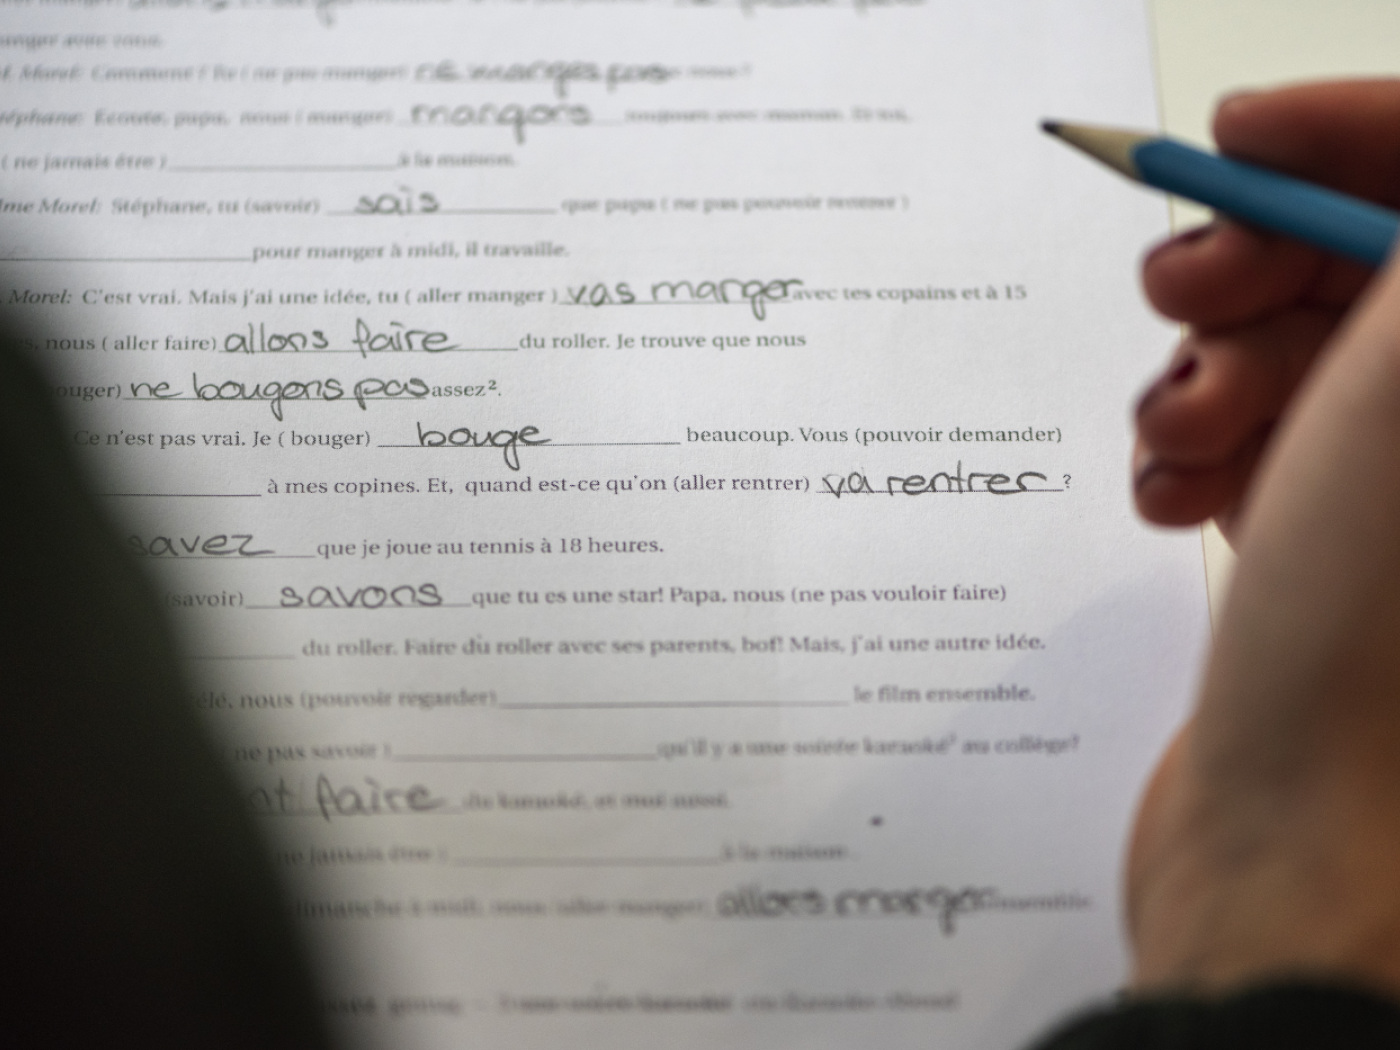 manger avec vous.
Morel: Comment? Tu ( ne pas manger) ne manges pas
Stéphane: Ecoute, papa, nous ( manger) mangons toujours avec maman. Et toi,
( ne jamais être ) à la maison.
Mme Morel: Stéphane, tu (savoir) sais que papa ( ne pas pouvoir rentrer )
pour manger à midi, il travaille.
Morel: C'est vrai. Mais j'ai une idée, tu ( aller manger ) vas manger avec tes copains et à 15
nous ( aller faire) allons faire du roller. Je trouve que nous
bouger) ne bougons pas assez².
Ce n'est pas vrai. Je ( bouger) bouge beaucoup. Vous (pouvoir demander)
à mes copines. Et, quand est-ce qu'on (aller rentrer) va rentrer ?
savez que je joue au tennis à 18 heures.
(savoir) savons que tu es une star! Papa, nous (ne pas vouloir faire)
du roller. Faire du roller avec ses parents, bof! Mais, j'ai une autre idée.
nous (pouvoir regarder) le film ensemble.
( ne pas savoir ) qu'il y a une soirée karaoké³ au collège?
faire du karaoké, et moi aussi.
ne jamais être ) à la maison.
nous (aller manger) allons manger ensemble.